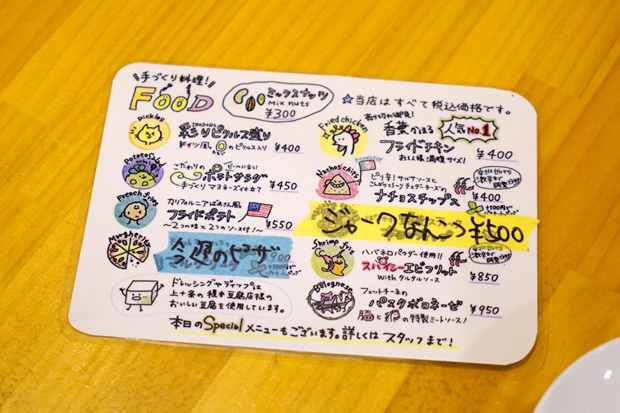 手づくり料理!
FOOD
ミックスナッツ
Mix nuts
¥300
☆当店はすべて税込価格です。
Pickles
彩りピクルス盛り
ドイツ風のピクルス入り ¥400
Potato Salad
こだわりの
ポテトサラダ
手づくりマヨネーズ仕立て ¥450
French fries
カリフォルニアはみだし風
フライドポテト
~2つの味と2つのソース付!~ ¥550
Margherita
今週のピザ
900
ドレッシングやディップには
上十条の
豆腐店様の
おいしい豆腐を使用しています。
Fried chicken
香草かほる
人気No.1
フライドチキン
お1人様満腹サイズ! ¥400
Nachos chips
ピリ辛!サルサソースと
こんがりとろ〜りチェダーチーズの
ナチョチップス
¥400
+100円で
ジャークなんこつ ¥500
Shrimp frit
ハバネロパウダー使用!!
スパイシーエビフリット
with タルタルソース ¥850
Bolognese
フェットチーネの
パスタボロネーゼ
豚と
の特製ミートソース! ¥950
本日のSpecialメニューもございます。詳しくはスタッフまで!